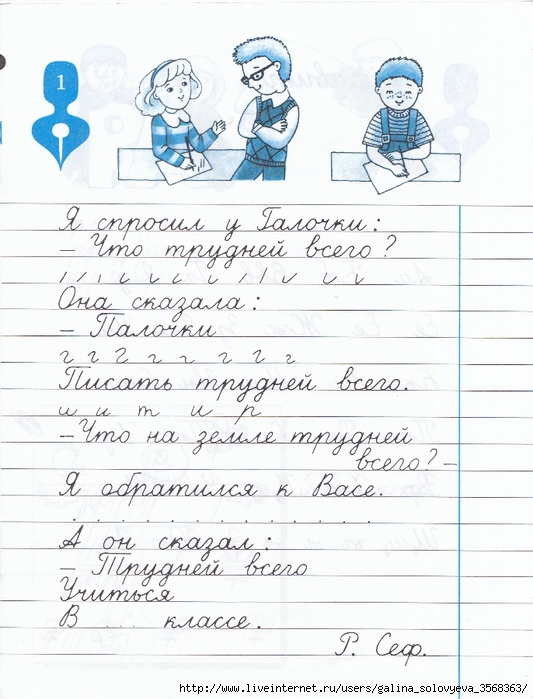 1
Я спросил у Галочки:
– Что трудней всего?
Она сказала:
– Палочки
г г г г г г г г
Писать трудней всего.
ш и т и р
– Что на земле трудней
всего? –
Я обратился к Васе.
. . . . . . . . . . . . .
А он сказал:
– Трудней всего
Учиться
В ... классе.
Р. Сеф.
http://www.liveinternet.ru/users/galina_solovyeva_3568363/